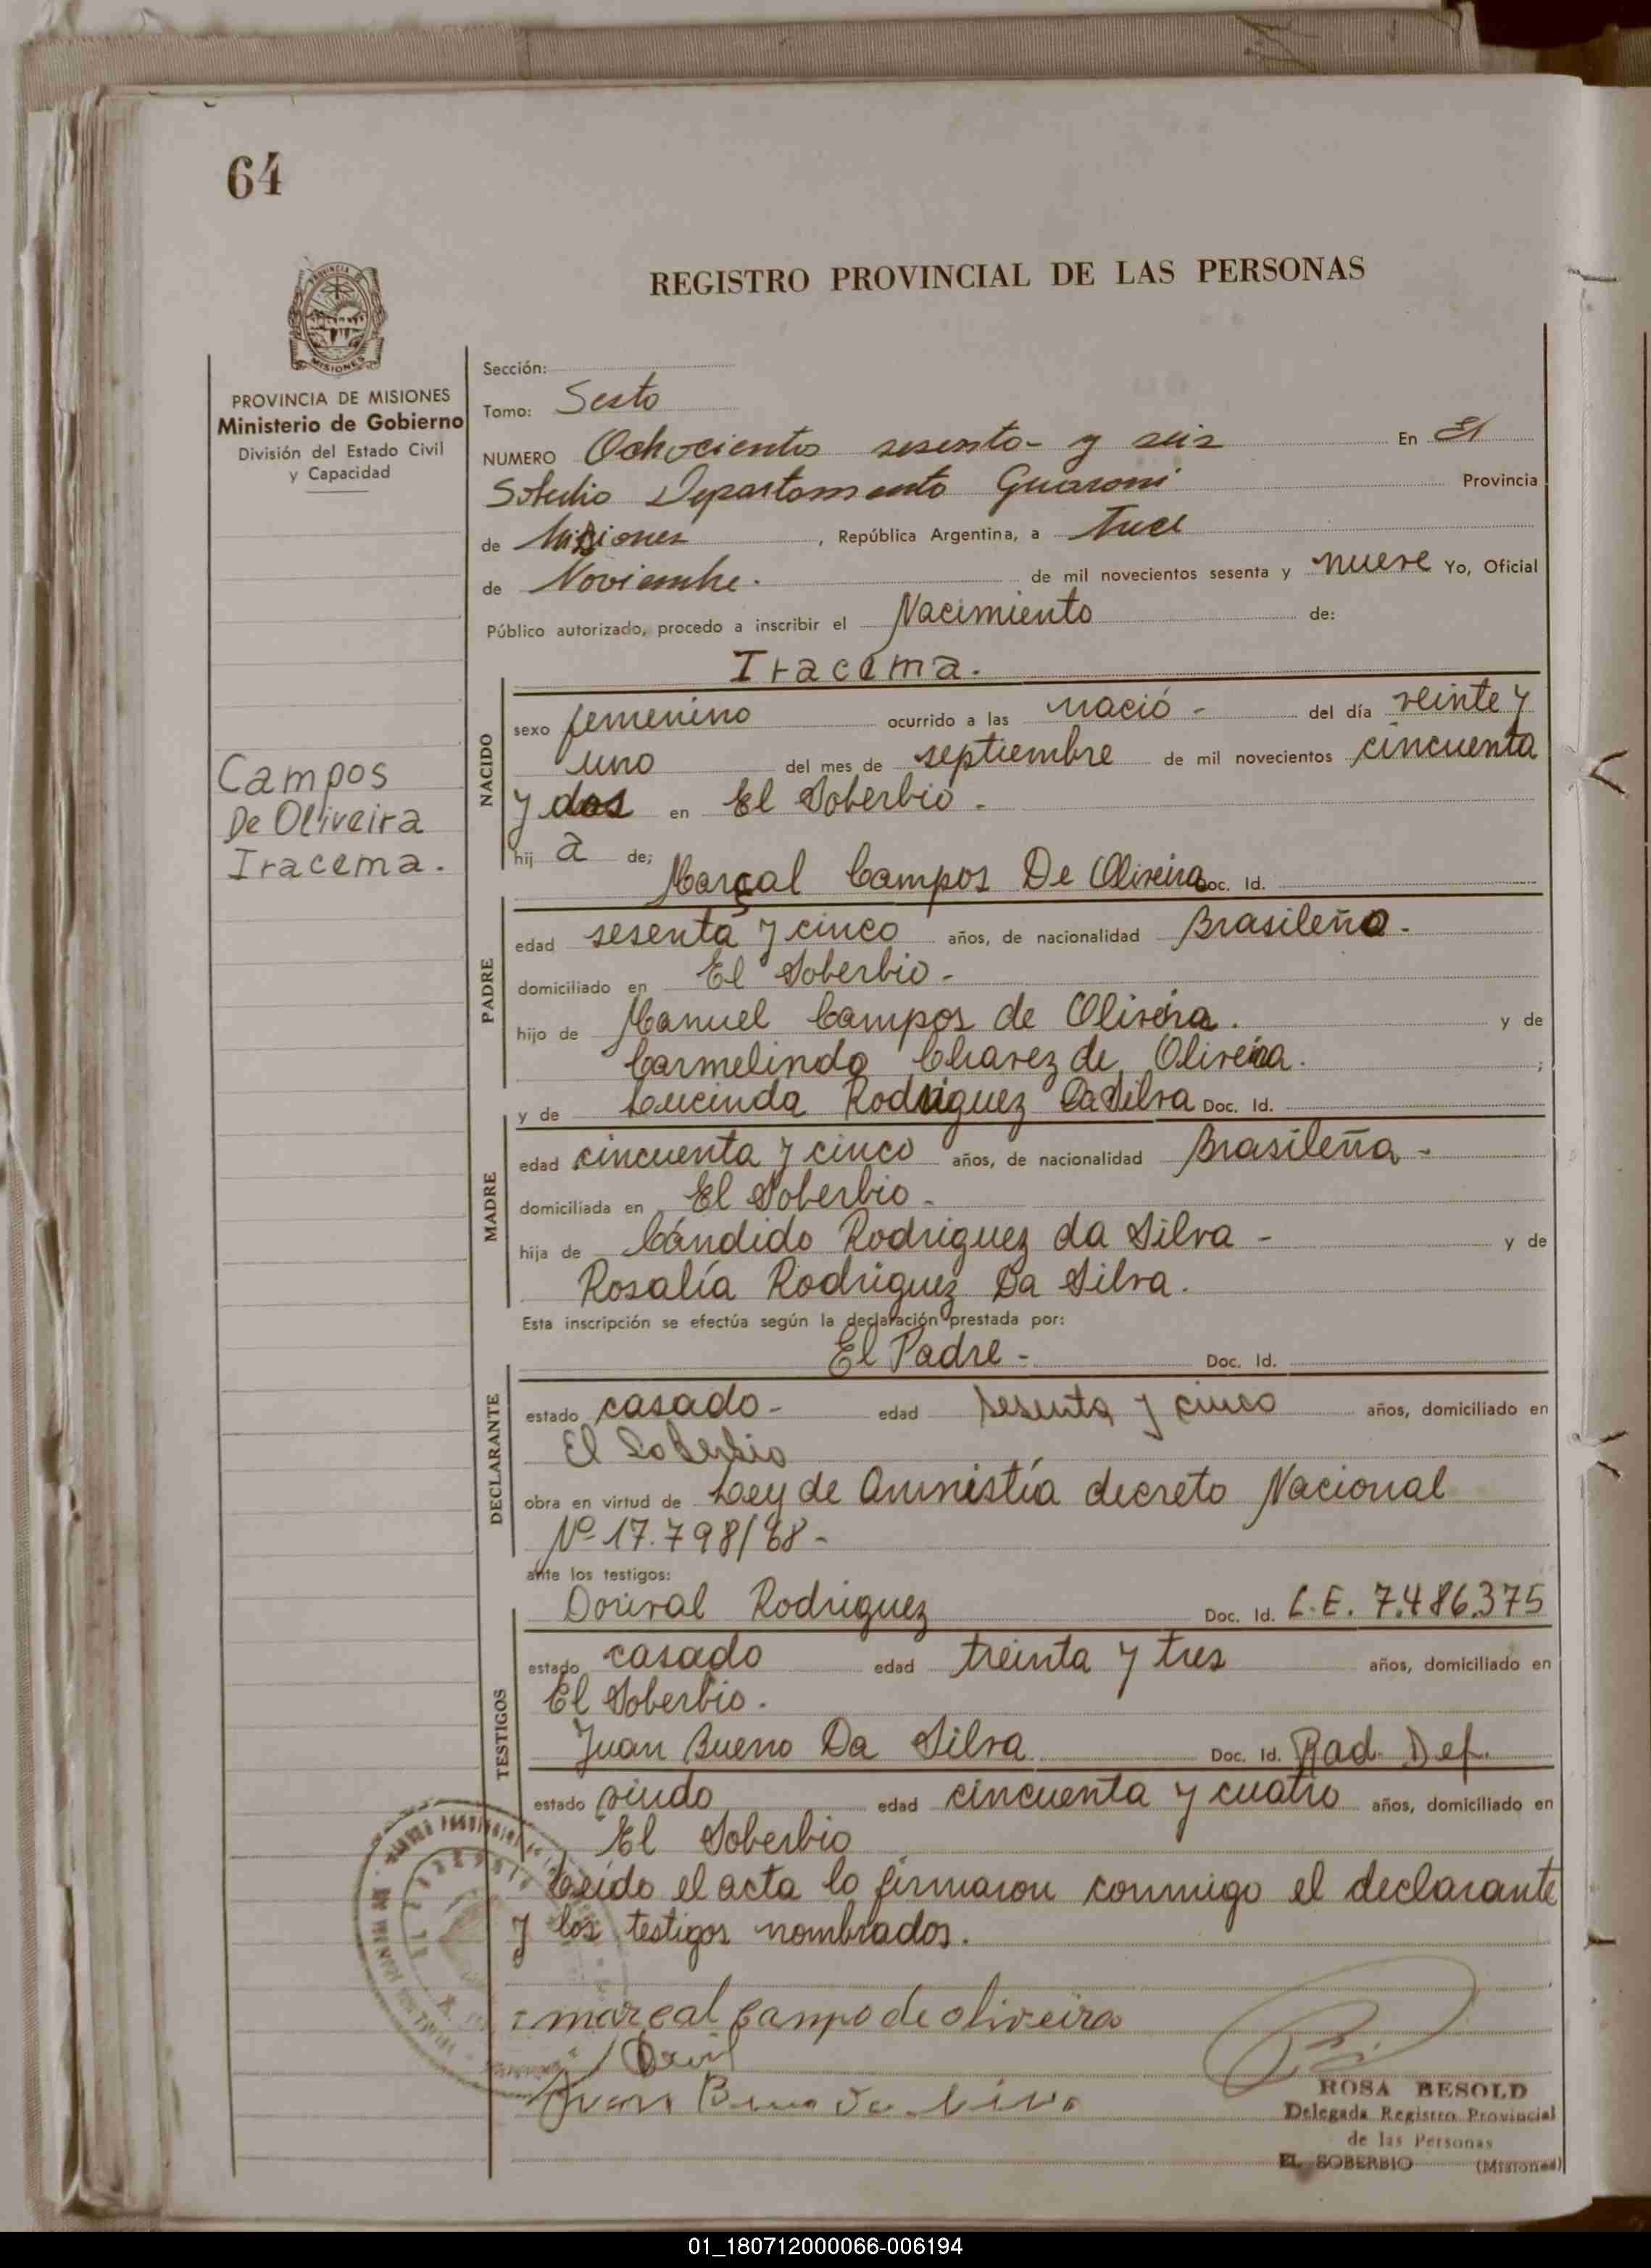 64
REGISTRO PROVINCIAL DE LAS PERSONAS
PROVINCIA
MISIONES
PROVINCIA DE MISIONES
Ministerio de Gobierno
División del Estado Civil
y Capacidad
Campos
De Oliveira
Iracema.
Sección:
Tomo: Sexto
NUMERO Ochocientos sesenta y seis En El
Soberbio Departamento Guaraní Provincia
de Misiones, República Argentina, a
de Noviembre. de mil novecientos sesenta y nueve Yo, Oficial
Público autorizado, procedo a inscribir el Nacimiento de:
Iracema.
NACIDO
sexo femenino ocurrido a las nació - del día veinte y
uno del mes de septiembre de mil novecientos cincuenta
y dos en El Soberbio -
hij a de;
Marçal Campos De Oliveira Doc. Id.
PADRE
edad sesenta y cinco años, de nacionalidad Brasileño -
domiciliado en El Soberbio -
hijo de Manuel Campos de Oliveira. y de
Carmelinda Chavez de Oliveira. ;
y de Lucinda Rodriguez Da Silva Doc. Id.
MADRE
edad cincuenta y cinco años, de nacionalidad Brasileña -
domiciliada en El Soberbio -
hija de Cándido Rodriguez da Silva - y de
Rosalía Rodriguez Da Silva.
Esta inscripción se efectúa según la declaración prestada por:
El Padre - Doc. Id.
DECLARANTE
estado casado - edad sesenta y cinco años, domiciliado en
El Soberbio
obra en virtud de Ley de Amnistía decreto Nacional
Nº 17.798/68 -
ante los testigos:
Dorival Rodriguez Doc. Id. L.E. 7.486.375
TESTIGOS
estado casado edad treinta y tres años, domiciliado en
El Soberbio.
Juan Bueno Da Silva Doc. Id. Rad. Def.
estado viudo edad cincuenta y cuatro años, domiciliado en
El Soberbio
Leido el acta lo firmaron conmigo el declarante
y los testigos nombrados.
marcal campo de oliveira
Juan Bueno da Silva
ROSA BESOLD
Delegada Registro Provincial
de las Personas
EL SOBERBIO (Misiones)
01_180712000066-006194